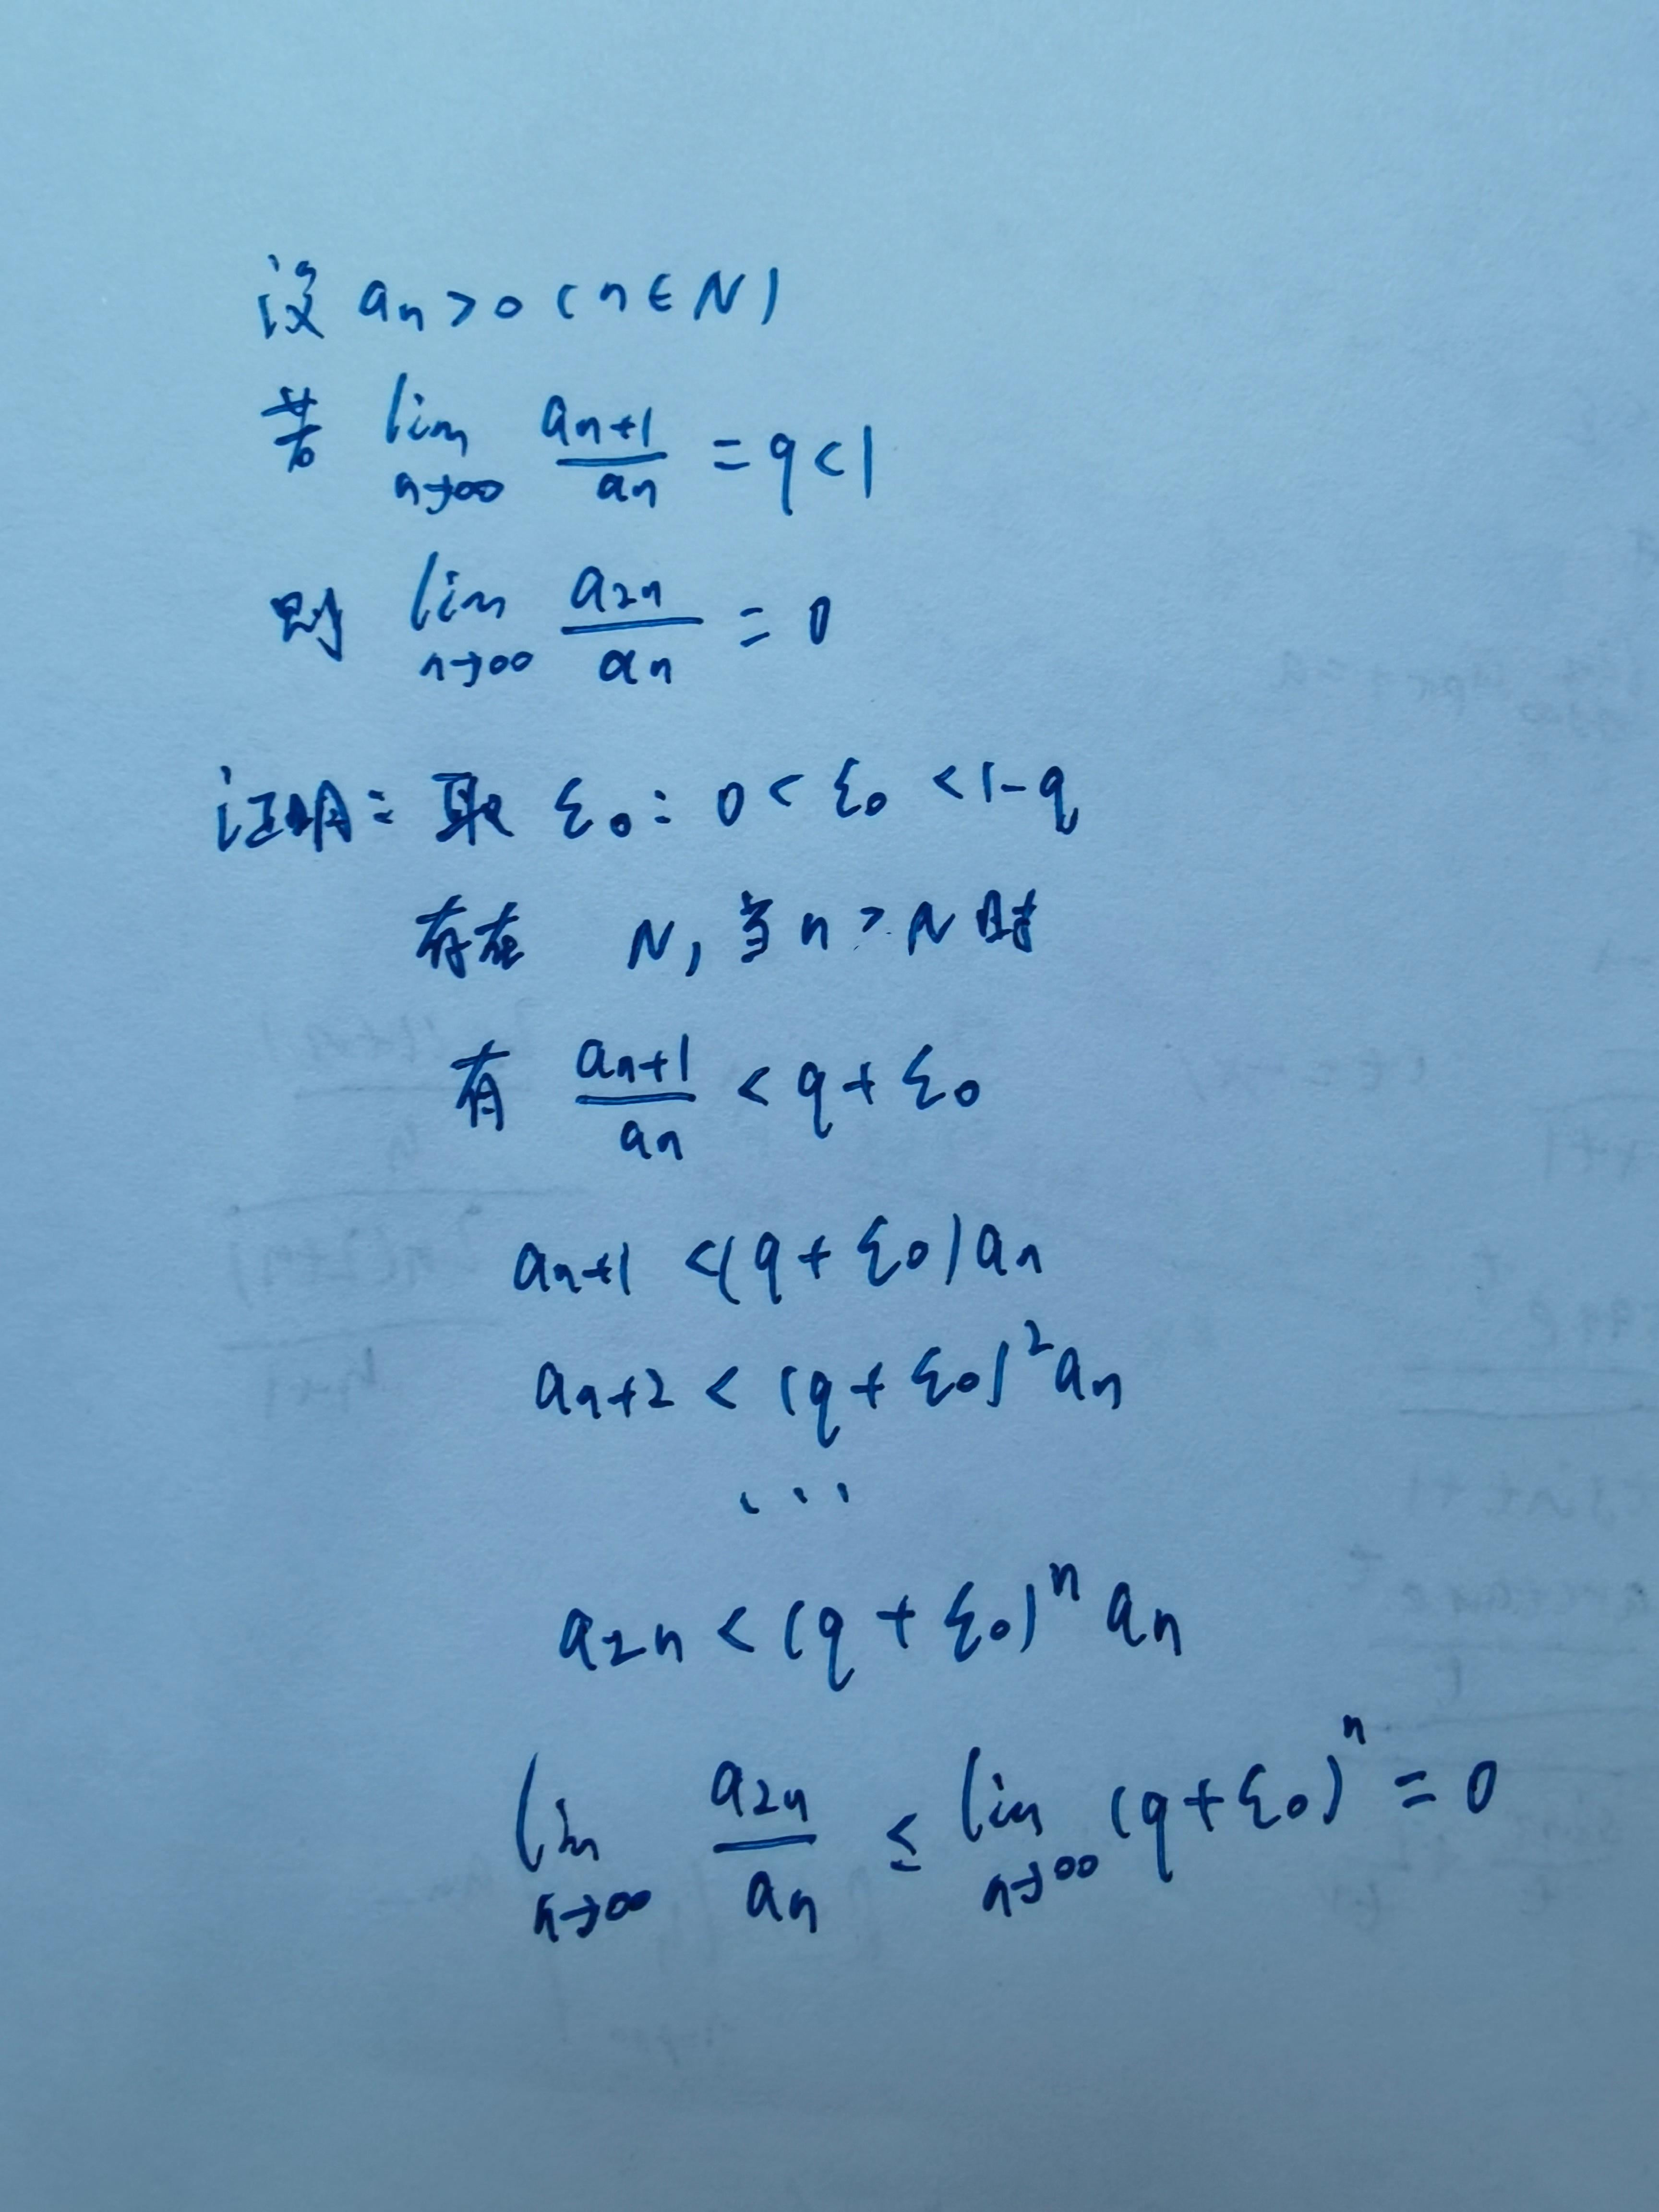 设 aₙ>0 (n∈N)
若 lim_{n→∞} aₙ₊₁/aₙ = q<1
则 lim_{n→∞} a₂ₙ/aₙ = 0
证明: 取 ε₀: 0<ε₀<1-q
存在 N, 当n>N时
有 aₙ₊₁/aₙ < q+ε₀
aₙ₊₁ <(q+ε₀)aₙ
aₙ₊₂ < (q+ε₀)²aₙ
...
a₂ₙ < (q+ε₀)ⁿ aₙ
lim_{n→∞} a₂ₙ/aₙ ≤ lim_{n→∞} (q+ε₀)ⁿ = 0